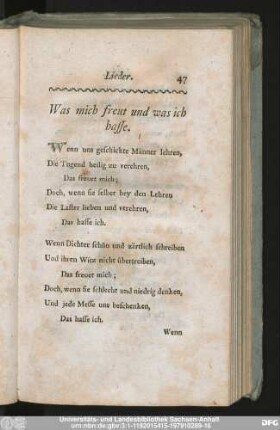 Lieder.
47
Was mich freut und was ich
hasse.
Wenn uns geschickte Männer lehren,
Die Tugend heilig zu verehren,
Das freuet mich;
Doch, wenn sie selber bey den Lehren
Die Laster lieben und verehren,
Das hasse ich.
Wenn Dichter schön und zärtlich schreiben
Und ihren Witz nicht übertreiben,
Das freuet mich;
Doch, wenn sie schlecht und niedrig denken,
Und jede Messe uns beschenken,
Das hasse ich.
Wenn
Universitäts- und Landesbibliothek Sachsen-Anhalt
urn:nbn:de:gbv:3:1-1192015415-197810269-16
DFG